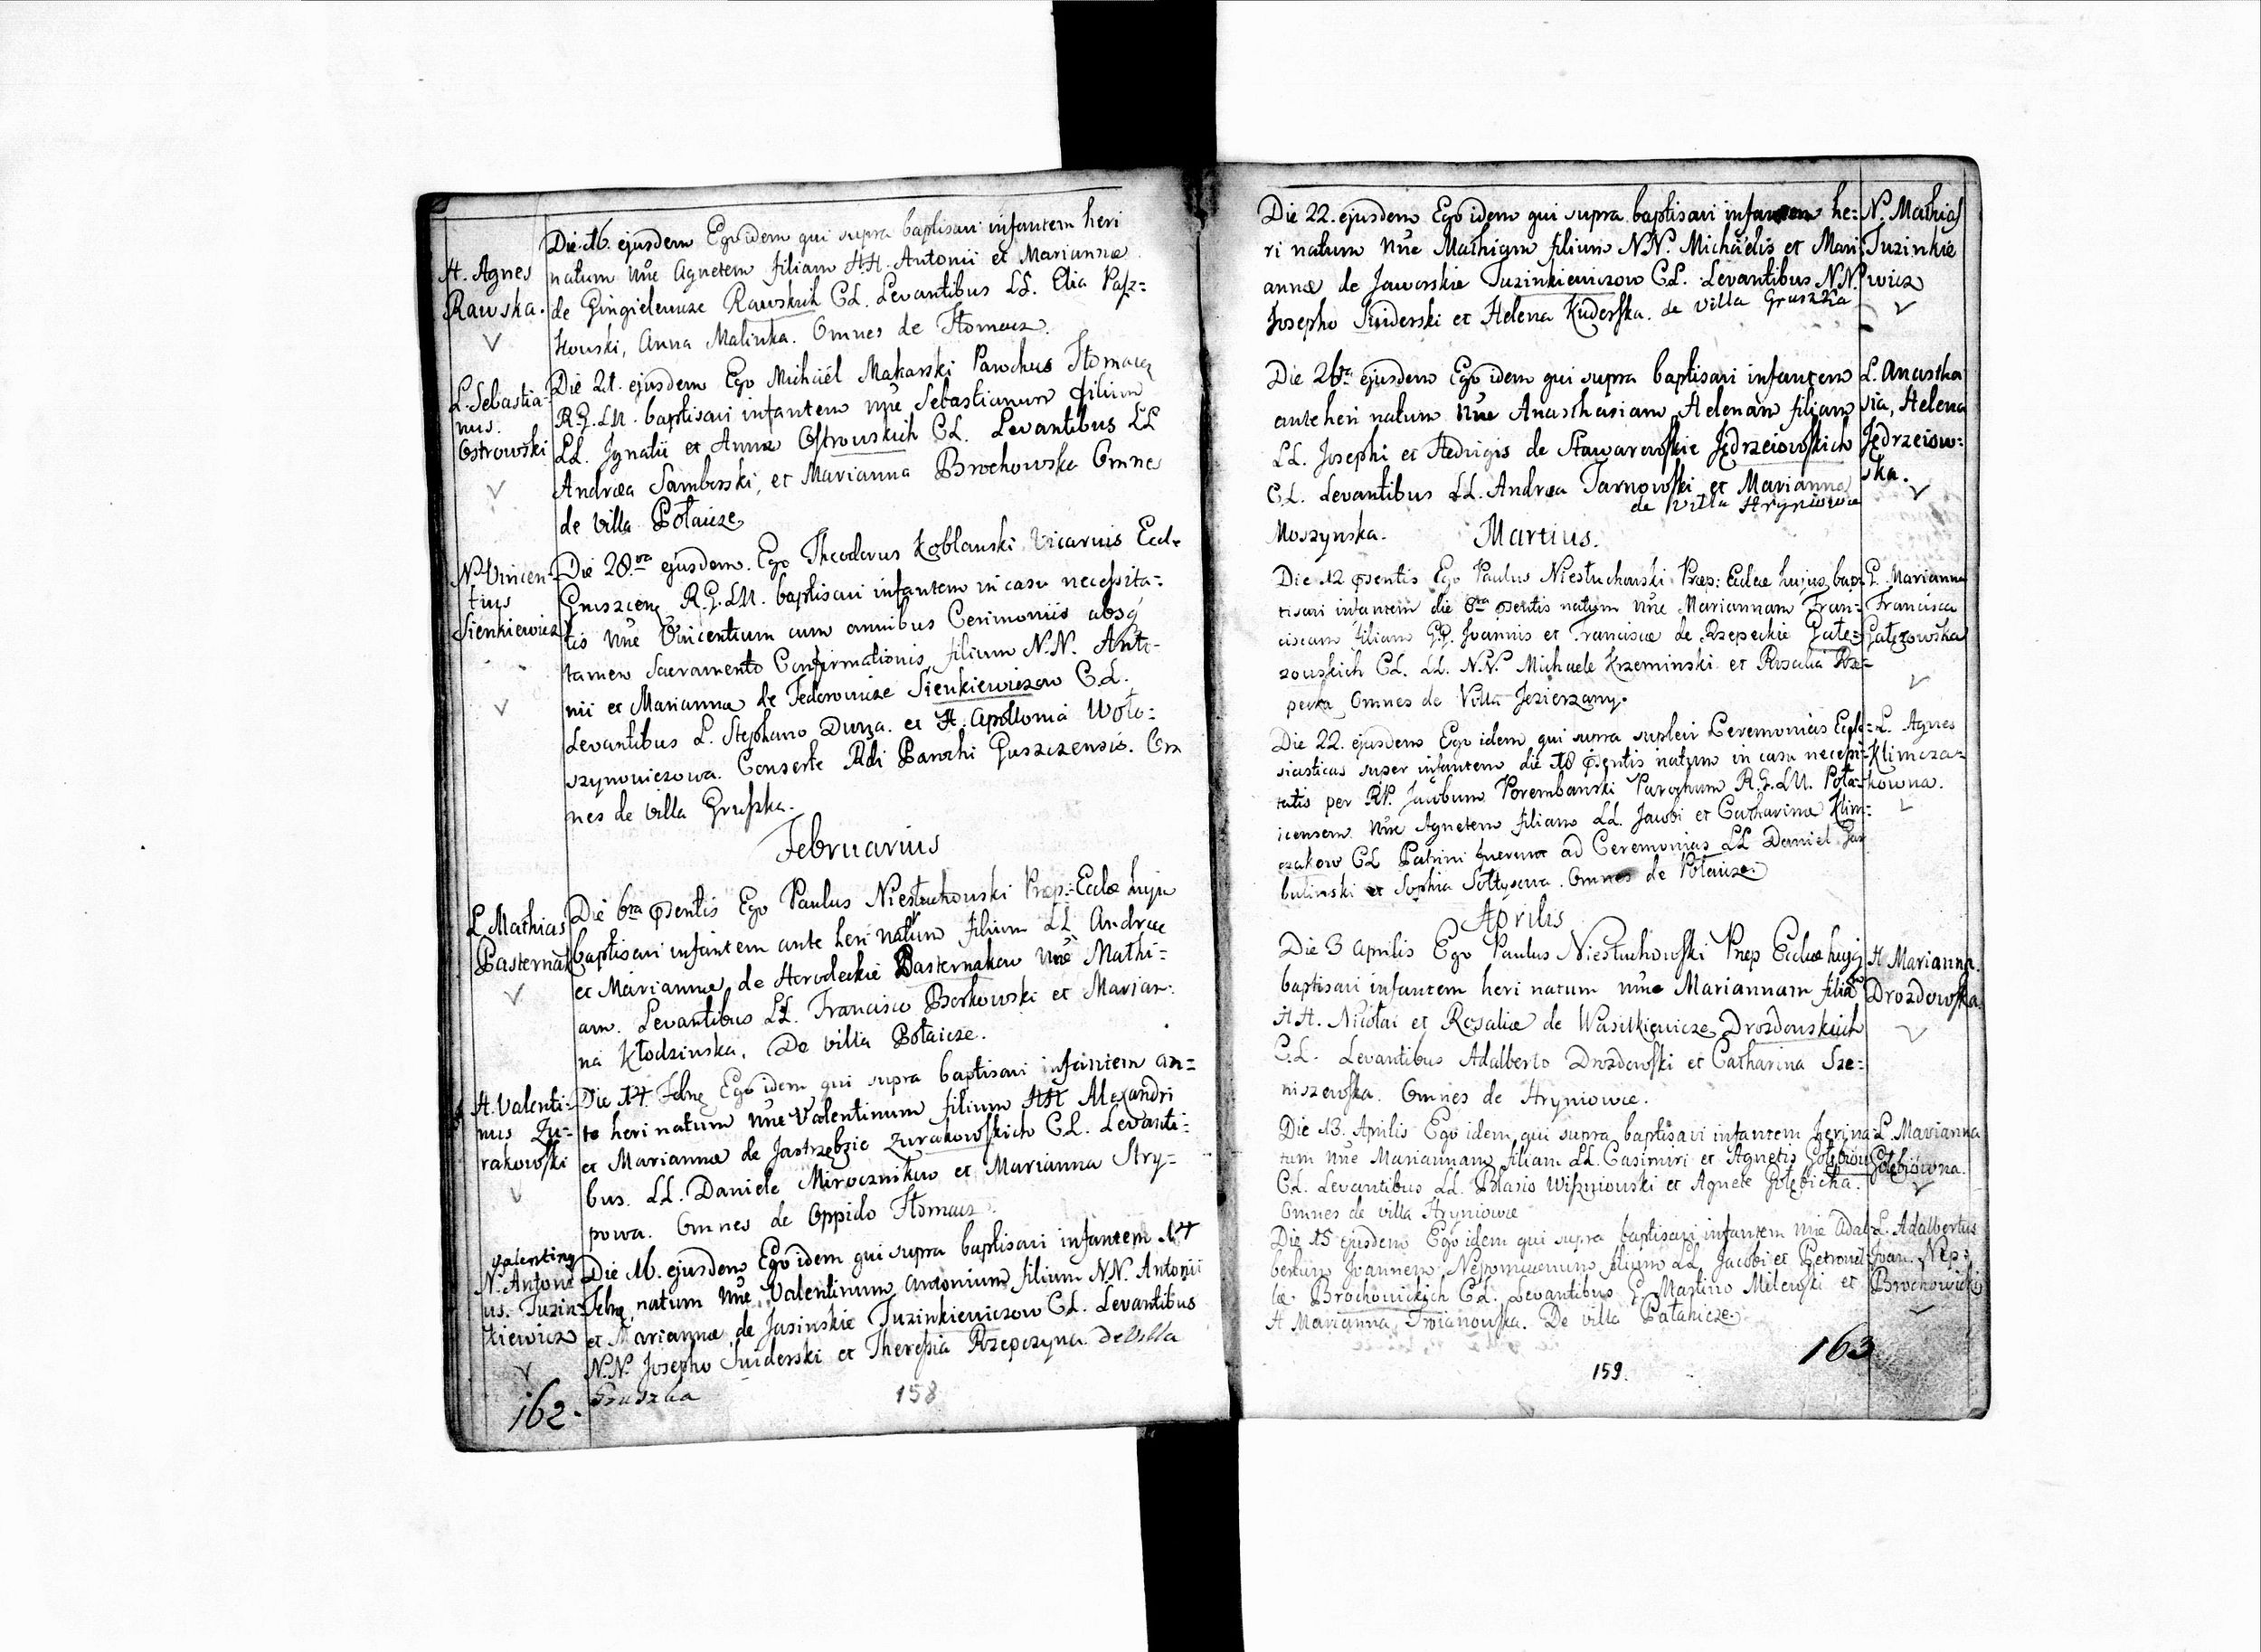 H. Agnes
Rawska.
Die 16. ejusdem Ego idem qui supra baptisavi infantem heri
natum nne Agnetem filiam H.H. Antonii et Marianna
de Gingielewicze Rawskich C.L. Levantibus LL. Elia Pasz=
kouski, Anna Malinka. Omnes de Tłomacz.
L. Sebastia-
nus.
Ostrowski
Die 21. ejusdem Ego Michaël Makarski Parochus Tłomacz
R.G.L.M. baptisavi infantem nne Sebastianum filium
LL. Ignatii et Anna Ostrouskich C.L. Levantibus LL
Andræa Samborski, et Marianna Brochowska Omnes
de villa Połaicze
N. Vincen-
tius
Sienkiewicz
Die 28.va ejusdem. Ego Theodorus Koblanski Vicarius Eccl-
R.G.L.M. baptisavi infantem in casu necessita=
tis nne Vincentium cum omnibus Cerimoniis absq
tamen Sacramento Confirmationis filium N.N. Anto-
nii et Marianna de Fedorowicze Sienkiewiczow C.L.
Levantibus L. Stephano Duża. et H. Apollonia Woło=
szynowiczowa. Conserte Rdi Parochi Guszczensis. Om
nes de villa Gruszka.
Februarius
L. Mathias
Pasternak
Die 6ta psentis Ego Paulus Niesłuchouski Præp: Eccłæ hujus
baptisavi infantem ante heri natum filium LL Andreæ
et Marianna de Horodeckie Pasternakow nne Mathi=
am. Levantibus LL. Francisco Borkowski et Marian:
na Kłodzinska. De villa Połaicze.
H. Valenti=
nus Zu=
rakowski
Die 14. Febrę Ego idem qui supra baptisavi infantem an=
te heri natum nne Valentinum filium HH Alexandri
et Marianna de Jastrzębzie Zurakowskich C.L. Levanti=
bus. LL. Daniele Mirocznikow et Marianna Stry=
powa. Omnes de Oppido Tłomacz.
Valentinq
N. Antoni
us. Tuzin=
kiewicz
Die 16. ejusdem Ego idem qui supra baptisavi infantem 14
Febrę natum nne Valentinum Antonium filium N.N. Antonii
et Marianna de Jasinskie Tuzinkiewiczow C.L. Levantibus
N.N. Josepho Swiderski et Theresia Rzepczyna. De villa
Gruszka
162.
158
Die 22. ejusdem Ego idem qui supra baptisavi infantem he=
ri natum nne Mathiam filium N.N. Michaëlis et Mari
anna de Jaworskie Tuzinkiewiczow C.L. Levantibus N.N.
Josepho Swiderski et Helena Kuderska. de villa Gruszka
N. Mathias
Tuzinkie
wicz
Die 26ta ejusdem Ego idem qui supra baptisavi infantem
ante heri natum nne Anasthasiam Helenam filiam
LL. Josephi et Hedvigis de Stawarowskie Jędrzeiowskich
C.L. Levantibus LL. Andræa Tarnowski et Marianna
de villa Hryniowce
Moszynska.
L. Anastha
sia, Helena
Jędrzeiow=
ska.
Martius.
Die 12 psentis Ego Paulus Niesłuchouski Præp: Eccłæ hujus bap-
tisavi infantem die 8va psentis natum nne Mariannam Fran=
ciscam filiam G.G. Joannis et Franciscæ de Rzepeckie Gałę=
zouskich C.L. LL. N.N. Michaele Krzeminski et Rosalia Rze=
pecka Omnes de Villa Jezierzany.
G. Marianna
Francisca
Gałęzowska
Die 22. ejusdem Ego idem qui supra suplevi Ceremonias Eccle=
siasticas super infantem die 18 psentis natum in casu necessi=
tatis per RP. Jacobum Porembanski Parochum R.G.L.M. Poła=
icensem nne Agnetem filiam LL. Jacobi et Catharina Klim=
czakow C.L Patrini fuerunt ad Ceremonias LL Daniel
bulinski et Sophia Sołtysowa. Omnes de Połaicze
L. Agnes
Klimcza=
kowna.
Aprilis
Die 3 Aprilis Ego Paulus Niesłuchowski Præp Eccłæ hujq
baptisavi infantem heri natum nne Mariannam filiã
H.H. Nicolai et Rosaliæ de Wasilkiewicze Drozdouskich
C.L. Levantibus Adalberto Drozdowski et Catharina Sze=
niszewska. Omnes de Hryniowce.
H Marianna.
Drozdowska.
Die 13. Aprilis Ego idem qui supra baptisavi infantem heri na
tum nne Mariannam filiam LL. Casimiri et Agnetis Gołębiow
C.L. Levantibus LL. Blasio Wiszniouski et Agnete Gołębicka.
Omnes de villa Hryniowce
L. Marianna
Gołębiowna.
Die 15 ejusdem Ego idem qui supra baptisavi infantem nne Adal=
bertum Joannem Nepomucenum filium LL. Jacobi et Petronel
læ Brochowickich C.L. Levantibus G. Martino Milewski et
H Marianna Troianowska. De villa Pałahicze.
L. Adalbertus
Joan. Nep:
Brochowicki
163
159.